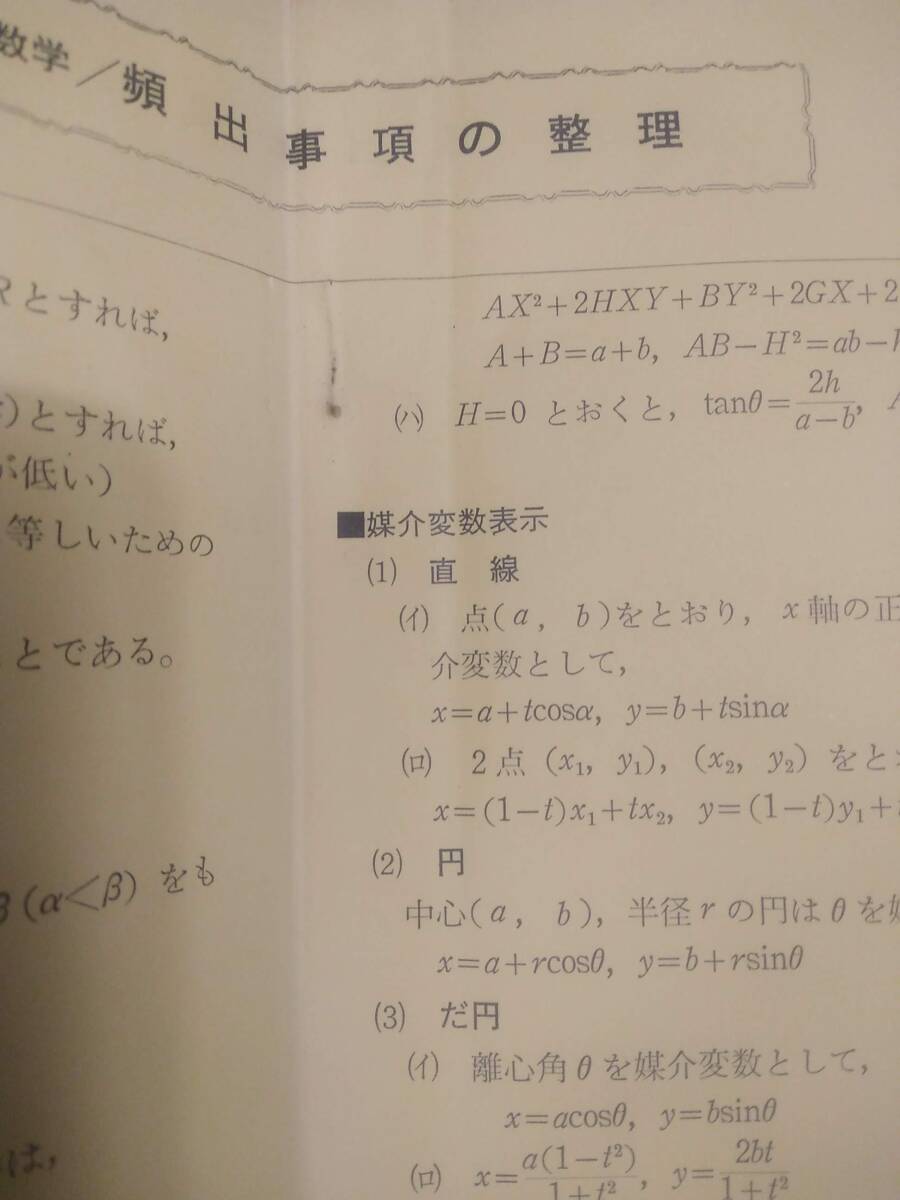 数学／頻出事項の整理
Rとすれば,
とすれば,
が低い)
等しいための
とである。
β (α<β) をも
は,
AX²+2HXY+BY²+2GX+2
A+B=a+b, AB−H²=ab−
(ハ) H=0 とおくと, tanθ=2h/(a−b),
■媒介変数表示
(1) 直線
(イ) 点(a, b)をとおり, x軸の正
介変数として,
x=a+tcosα, y=b+tsinα
(ロ) 2点 (x₁, y₁), (x₂, y₂) をと
x=(1−t)x₁+tx₂, y=(1−t)y₁+
(2) 円
中心(a, b), 半径rの円はθを
x=a+rcosθ, y=b+rsinθ
(3) だ円
(イ) 離心角θを媒介変数として,
x=acosθ, y=bsinθ
(ロ) x=a(1−t²)/(1+t²), y=2bt/(1+t²)